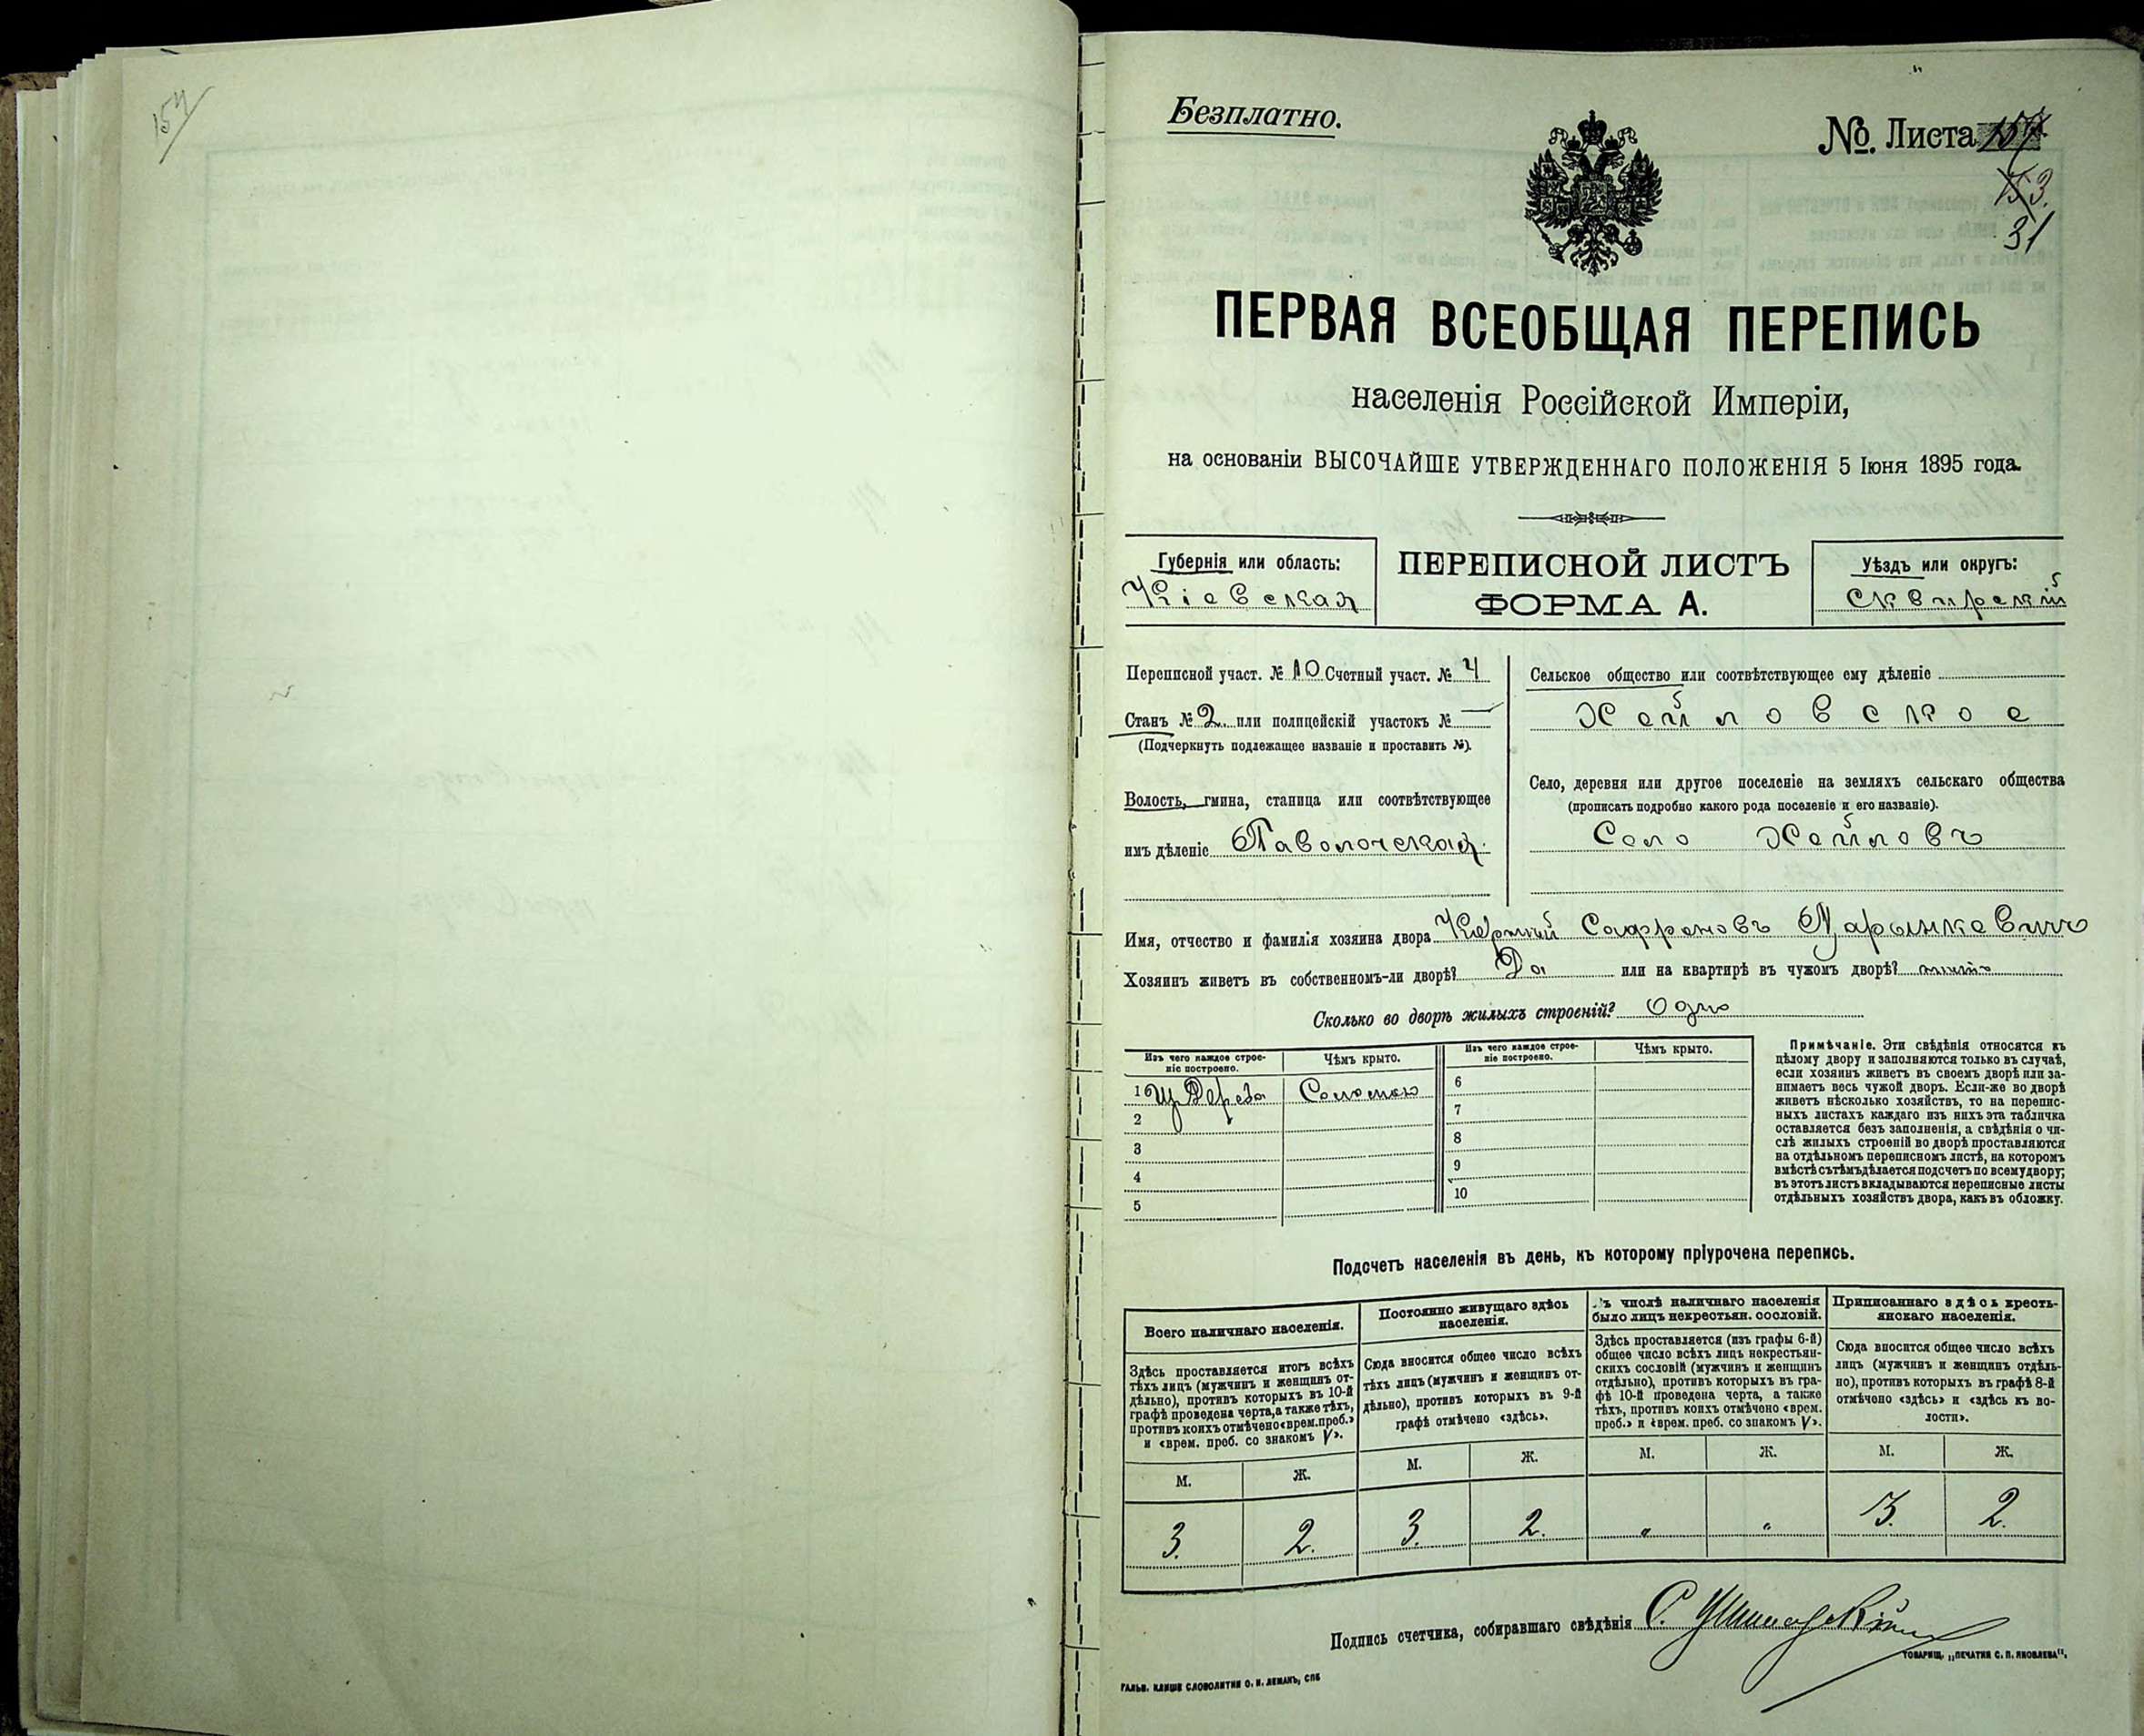 154
Безплатно.
№. Листа 154
153.
31
ПЕРВАЯ ВСЕОБЩАЯ ПЕРЕПИСЬ
населенія Россійской Имперіи,
на основаніи ВЫСОЧАЙШЕ УТВЕРЖДЕННАГО ПОЛОЖЕНІЯ 5 Іюня 1895 года.
Губернія или область:
Кіевская
ПЕРЕПИСНОЙ ЛИСТЪ
ФОРМА А.
Уѣздъ или округъ:
Сквирскій
Переписной участ. № 10 Счетный участ. № 4
Станъ № 2 или полицейскій участокъ № —
(Подчеркнуть подлежащее названіе и проставить №).
Волость, гмина, станица или соотвѣтствующее
имъ дѣленіе Паволочская
Сельское общество или соотвѣтствующее ему дѣленіе
Хейловское
Село, деревня или другое поселеніе на земляхъ сельскаго общества
(прописать подробно какого рода поселеніе и его названіе).
Село Хейловъ
Имя, отчество и фамилія хозяина двора Сафроновъ
Хозяинъ живетъ въ собственномъ-ли дворѣ? Да или на квартирѣ въ чужомъ дворѣ?
Сколько во дворѣ жилыхъ строеній? Одно
Изъ чего каждое строе-
ніе построено.
Чѣмъ крыто.
Изъ чего каждое строе-
ніе построено.
Чѣмъ крыто.
1 Из Дерева Соломою
2
3
4
5
6
7
8
9
10
Примѣчаніе. Эти свѣдѣнія относятся къ
цѣлому двору и заполняются только въ случаѣ,
если хозяинъ живетъ въ своемъ дворѣ или за-
нимаетъ весь чужой дворъ. Если-же во дворѣ
живетъ нѣсколько хозяйствъ, то на перепис-
ныхъ листахъ каждаго изъ нихъ эта табличка
оставляется безъ заполненія, а свѣдѣнія о чи-
слѣ жилыхъ строеній во дворѣ проставляются
на отдѣльномъ переписномъ листѣ, на которомъ
вмѣстѣ съ тѣмъ дѣлается подсчетъ по всему двору;
въ этотъ листъ вкладываются переписные листы
отдѣльныхъ хозяйствъ двора, какъ въ обложку.
Подсчетъ населенія въ день, къ которому пріурочена перепись.
Всего наличнаго населенія.
Здѣсь проставляется итогъ всѣхъ
тѣхъ лицъ (мужчинъ и женщинъ от-
дѣльно), противъ которыхъ въ 10-й
графѣ проведена черта, а также тѣхъ,
противъ коихъ отмѣчено «врем. преб.»
и «врем. преб. со знакомъ V».
М. Ж.
3. 2.
Постоянно живущаго здѣсь
населенія.
Сюда вносится общее число всѣхъ
тѣхъ лицъ (мужчинъ и женщинъ от-
дѣльно), противъ которыхъ въ 9-й
графѣ отмѣчено «здѣсь».
М. Ж.
3. 2.
Въ числѣ наличнаго населенія
было лицъ некрестьян. сословій.
Здѣсь проставляется (изъ графы 6-й)
общее число всѣхъ лицъ некрестьян-
скихъ сословій (мужчинъ и женщинъ
отдѣльно), противъ которыхъ въ гра-
фѣ 10-й проведена черта, а также
тѣхъ, противъ коихъ отмѣчено «врем.
преб.» и «врем. преб. со знакомъ V».
М. Ж.
" "
Приписаннаго здѣсь кресть-
янскаго населенія.
Сюда вносится общее число всѣхъ
лицъ (мужчинъ и женщинъ отдѣль-
но), противъ которыхъ въ графѣ 8-й
отмѣчено «здѣсь» и «здѣсь къ во-
лости».
М. Ж.
3. 2.
Подпись счетчика, собиравшаго свѣдѣнія С.
ТОВАРИЩ. „ПЕЧАТНЯ С. П. ЯКОВЛЕВА“.
ГАЛЬВ. КЛИШЕ СЛОВОЛИТНИ О. И. ЛЕМАНЪ, СПБ